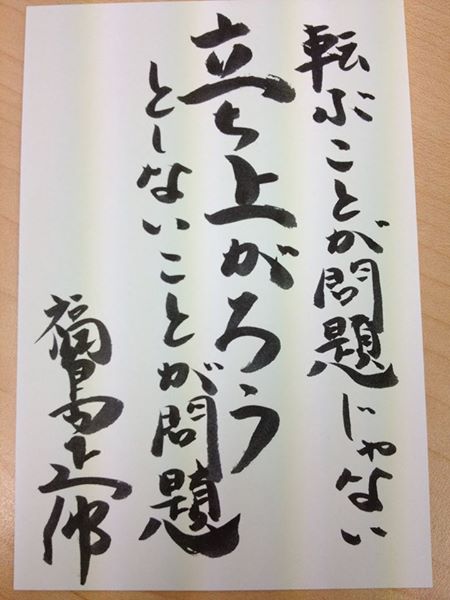 転ぶことが問題じゃない
立ち上がろう
としないことが問題
福島正伸